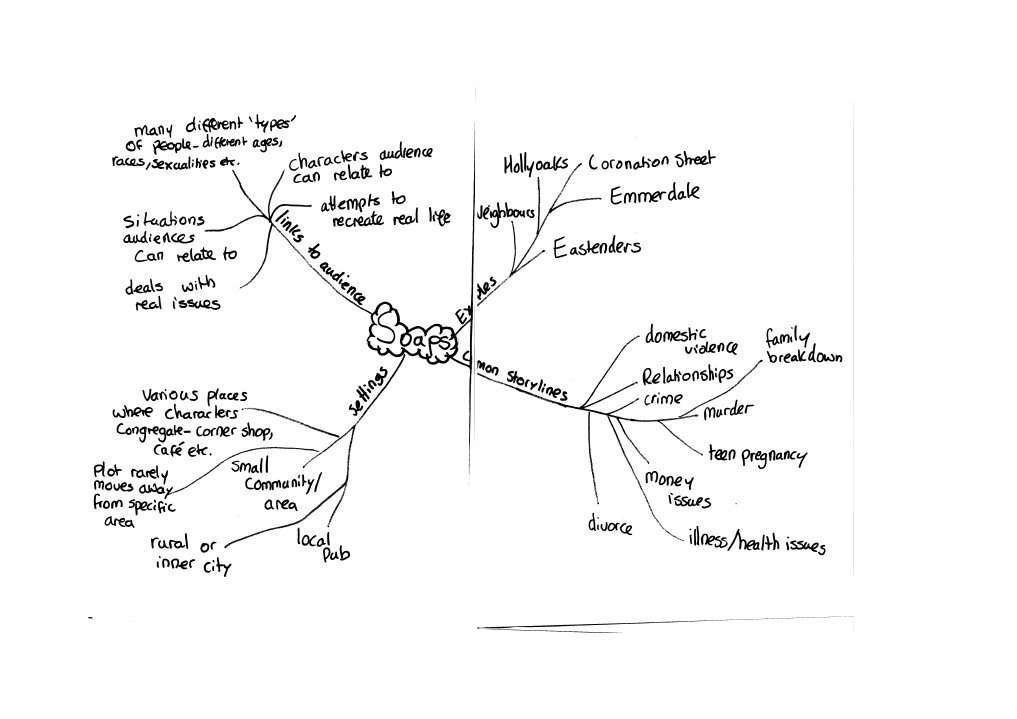 many different 'types'
of people - different ages,
races, sexualities etc.
Characters audience
can relate to
attempts to
recreate real life
Situations
audiences
can relate to
deals with
real issues
links to audience
Soaps
Hollyoaks
Coronation Street
Emmerdale
Neighbours
Eastenders
mon Storylines
domestic
violence
Relationships
crime
family
breakdown
murder
teen pregnancy
money
issues
illness/health issues
divorce
settings
Various places
where characters
Congregate - corner shop,
café etc.
Plot rarely
moves away
from specific
area
small
community/
area
rural or
inner city
local
Pub